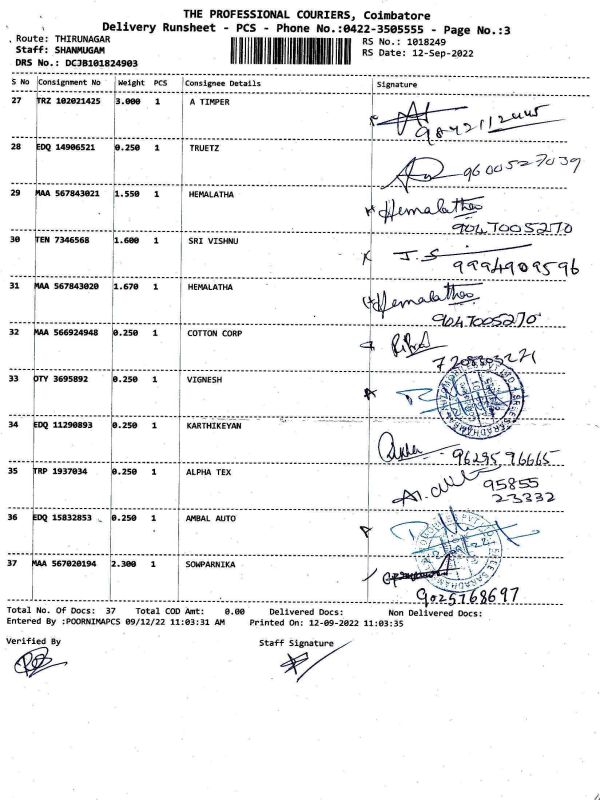 THE PROFESSIONAL COURIERS, Coimbatore
Delivery Runsheet - PCS - Phone No.:0422-3505555 - Page No.:3
Route: THIRUNAGAR
RS No.: 1018249
Staff: SHANMUGAM
RS Date: 12-Sep-2022
DRS No.: DCJB101824903
S No Consignment No Weight PCS Consignee Details Signature
27 TRZ 102021425 3.000 1 A TIMPER
28 EDQ 14906521 0.250 1 TRUETZ
9600527039
29 MAA 567843021 1.550 1 HEMALATHA
Hemalatha
9047005270
30 TEN 7346568 1.600 1 SRI VISHNU
J. S
9994909596
31 MAA 567843020 1.670 1 HEMALATHA
Hemalatha
9047005270
32 MAA 566924948 0.250 1 COTTON CORP
33 OTY 3695892 0.250 1 VIGNESH
34 EDQ 11290893 0.250 1 KARTHIKEYAN
9629596665
35 TRP 1937034 0.250 1 ALPHA TEX
95855
23332
36 EDQ 15832853 0.250 1 AMBAL AUTO
37 MAA 567020194 2.300 1 SOWPARNIKA
9025768697
Total No. Of Docs: 37 Total COD Amt: 0.00 Delivered Docs: Non Delivered Docs:
Entered By :POORNIMAPCS 09/12/22 11:03:31 AM Printed On: 12-09-2022 11:03:35
Verified By Staff Signature